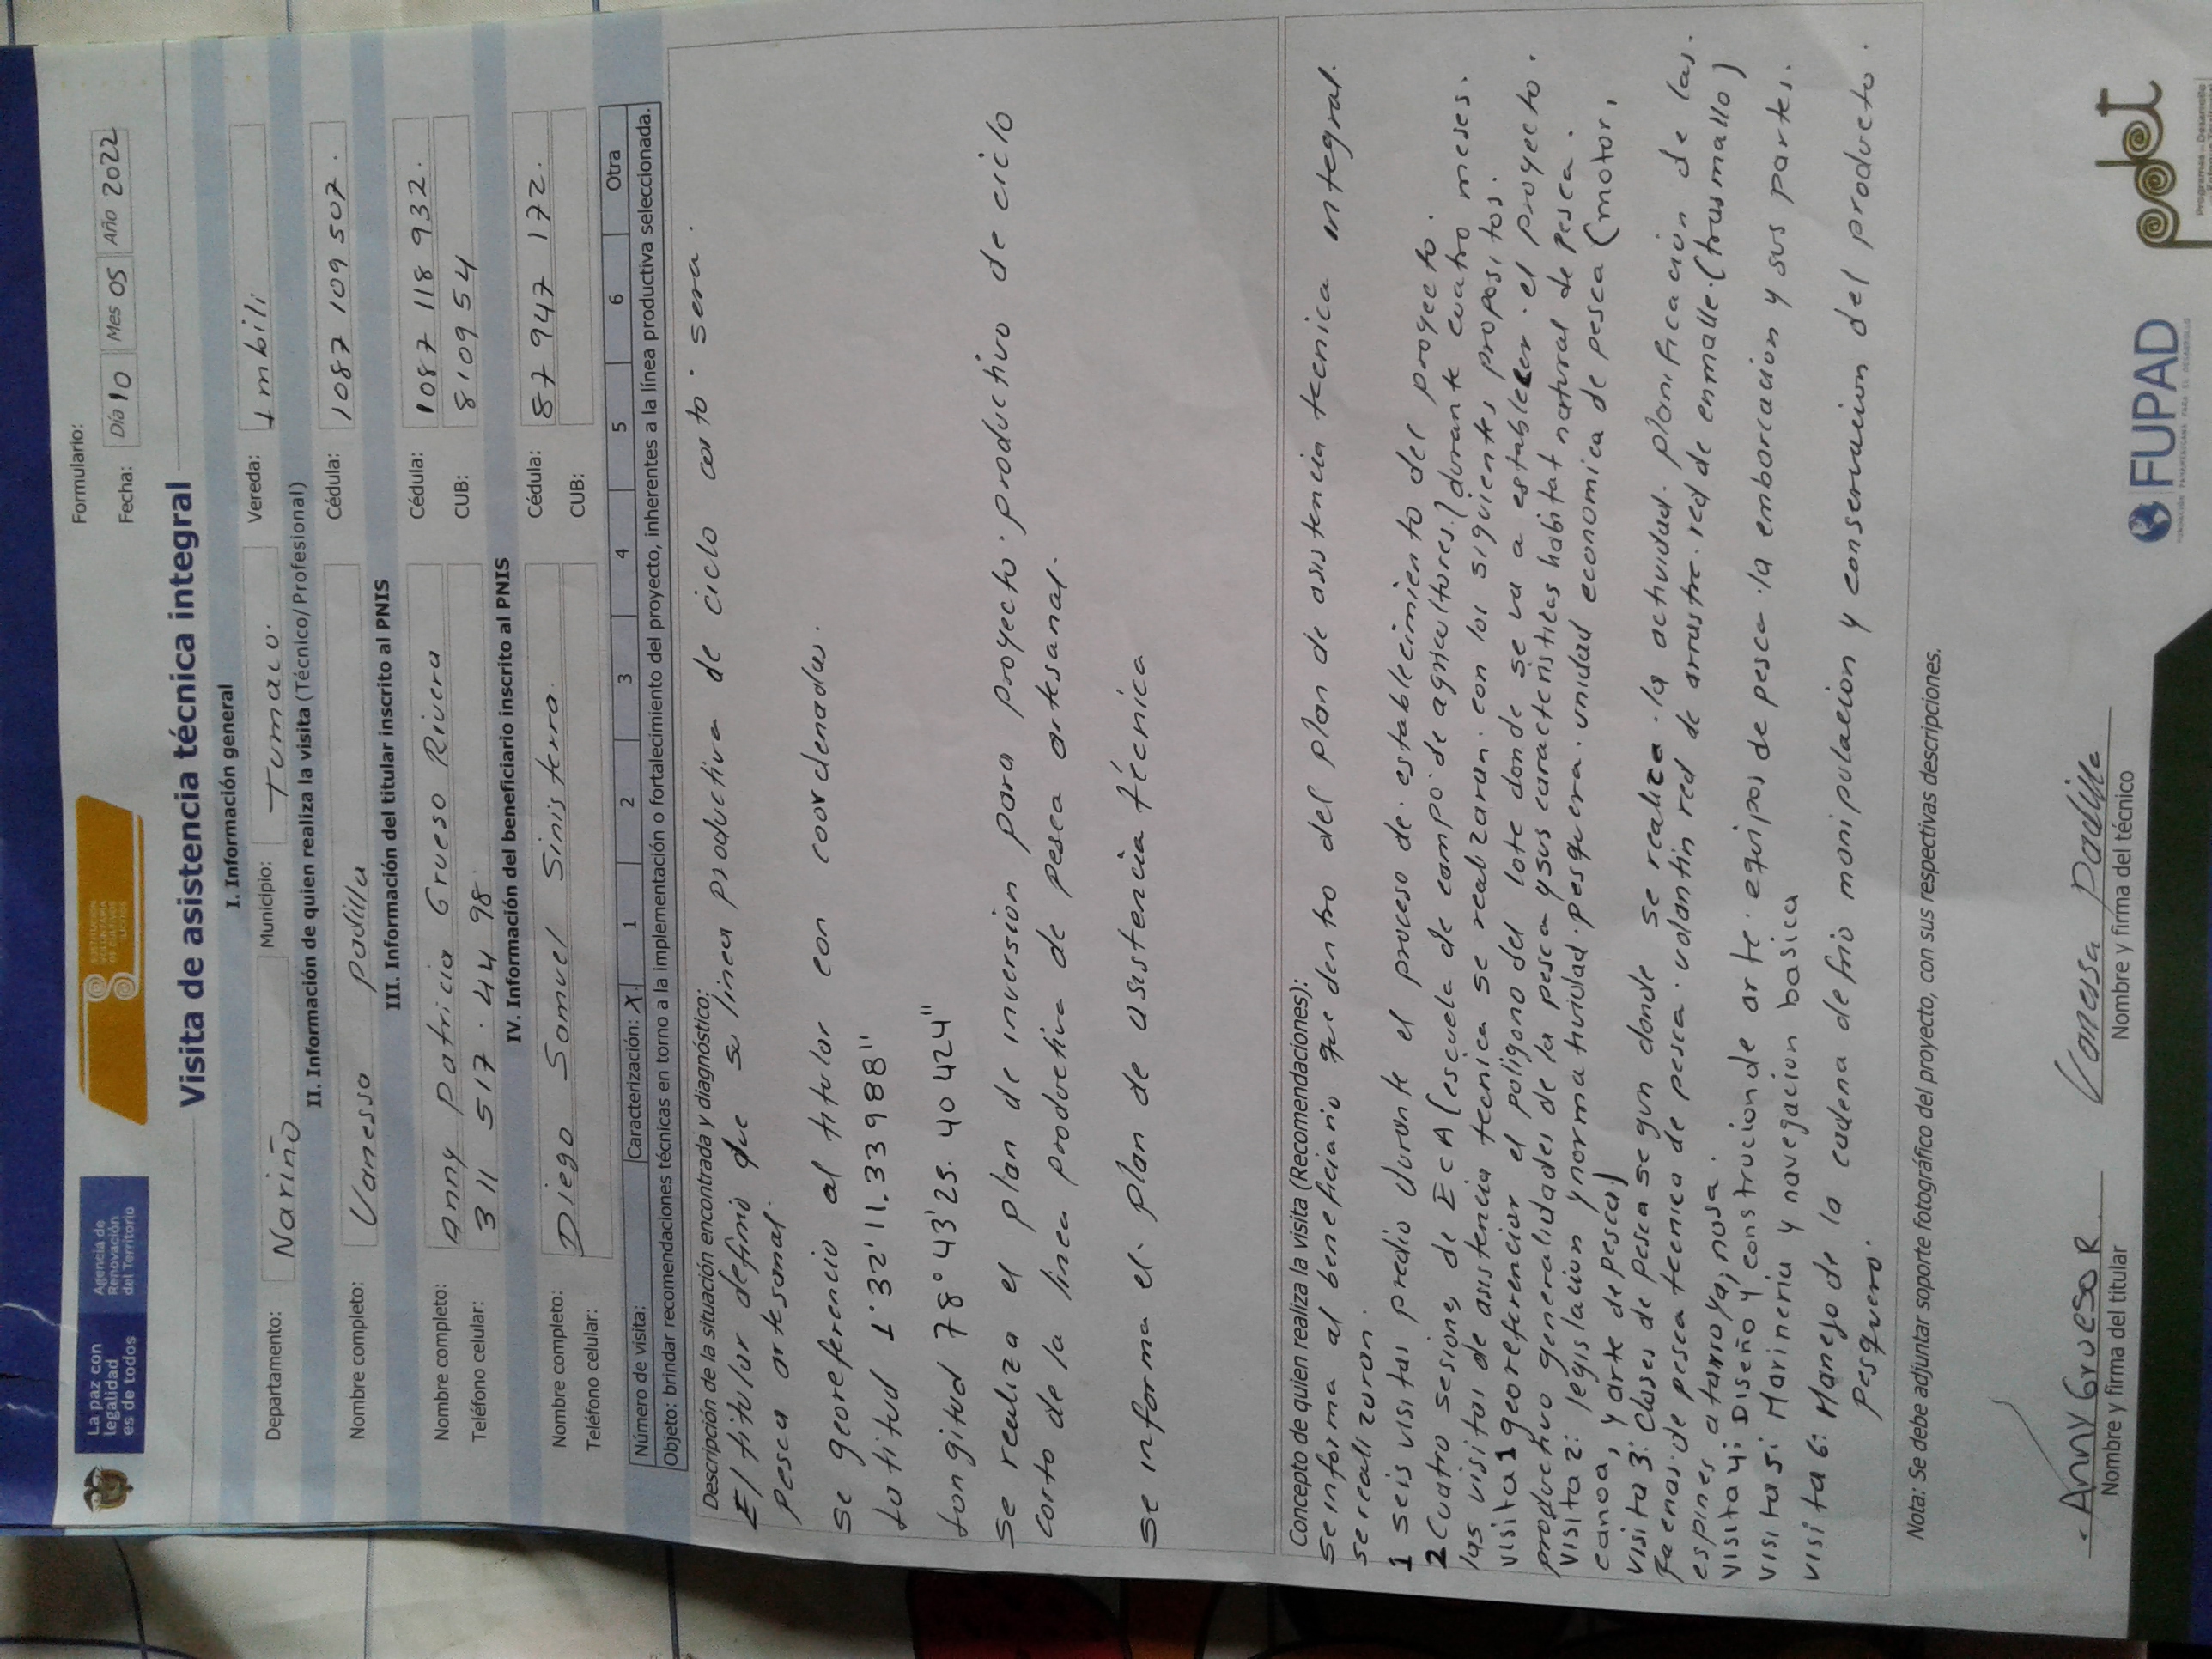 La paz con
legalidad
es de todos
Agencia de
Renovación
del Territorio
SUSTITUCIÓN
VOLUNTARIA
DE CULTIVOS
ILÍCITOS
Formulario:
Fecha: Día 10 Mes 05 Año 2022
Visita de asistencia técnica integral
I. Información general
Departamento: Nariño Municipio: Tumaco. Vereda: Imbili
II. Información de quien realiza la visita (Técnico/Profesional)
Nombre completo: Vanessa Padilla Cédula: 1087 109 507.
III. Información del titular inscrito al PNIS
Nombre completo: Anny Patricia Grueso Rivera Cédula: 1087 118 932.
Teléfono celular: 311 517. 44 98. CUB: 810954
IV. Información del beneficiario inscrito al PNIS
Nombre completo: Diego Samuel Sinisterra. Cédula: 87 947 172.
Teléfono celular: CUB:
Número de visita: Caracterización: X 1 2 3 4 5 6 Otra
Objeto: brindar recomendaciones técnicas en torno a la implementación o fortalecimiento del proyecto, inherentes a la línea productiva seleccionada.
Descripción de la situación encontrada y diagnóstico:
El titular definio que su linea productiva de ciclo corto. sera.
pesca artesanal.
se georeferencio al titular con coordenadas.
Latitud 1°32'11.33988"
Longitud 78°43'25.40424"
se realiza el plan de inversion para proyecto. productivo de ciclo
corto de la linea productiva de pesca artesanal.
se informa el plan de asistencia técnica
Concepto de quien realiza la visita (Recomendaciones):
se informa al beneficiario que dentro del plan de asistencia tecnica integral.
se realizaran.
1 seis visitas predio durante el proceso de establecimiento del proyecto.
2 Cuatro sesiones de ECA (escuela de campo de agricultores.) durante cuatro meses.
las visitas de asistencia tecnica se realizaran. con los siguientes propositos.
visita 1 georeferenciar el poligono del lote donde se va a establecer. el proyecto.
productivo generalidades de la pesca y sus caracteristicas habitat natural de pesca.
visita 2: legislacion y normatividad. pesquera. unidad economica de pesca (motor,
canoa, y arte de pesca)
visita 3: Clases de pesca segun donde se realiza. la actividad. planificacion de las.
faenas. de pesca tecnica de pesca. volantin red de arrastre. red de enmalle. (trasmallo)
espines atarraya, nasa.
visita 4: Diseño y construcion de arte. equipos de pesca. la emborcacion y sus partes.
visita 5: Marineria y navegacion basica
visita 6: Manejo de la cadena de frio manipulacion y conservacion del producto.
pesquero.
Nota: Se debe adjuntar soporte fotográfico del proyecto, con sus respectivas descripciones.
Anny Grueso R. Vanessa Padilla
Nombre y firma del titular Nombre y firma del técnico
FUPAD
FUNDACIÓN PANAMERICANA PARA EL DESARROLLO
pdet
Programas de Desarrollo